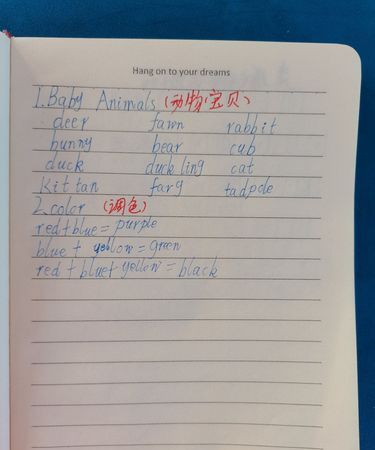 Hang on to your dreams
1. Baby Animals (动物宝贝)
deer fawn rabbit
bunny bear cub
duck duckling cat
Kittan farg tadpole
2. color (调色)
red+blue=purple
blue+yellow=green
red+blue+yellow=black